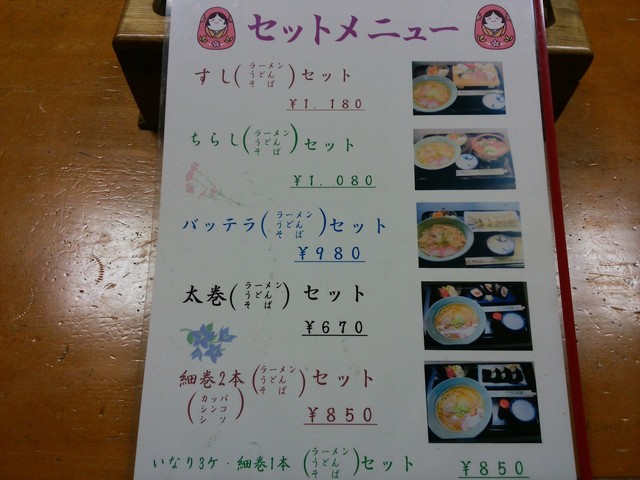 セットメニュー
すし(ラーメン うどん そば)セット
¥1.180
ちらし(ラーメン うどん そば)セット
¥1.080
バッテラ(ラーメン うどん そば)セット
¥980
太巻(ラーメン うどん そば)セット
¥670
細巻2本(ラーメン うどん そば)セット
(カッパ シンコ シソ) ¥850
いなり3ケ・細巻1本(ラーメン うどん そば)セット ¥850